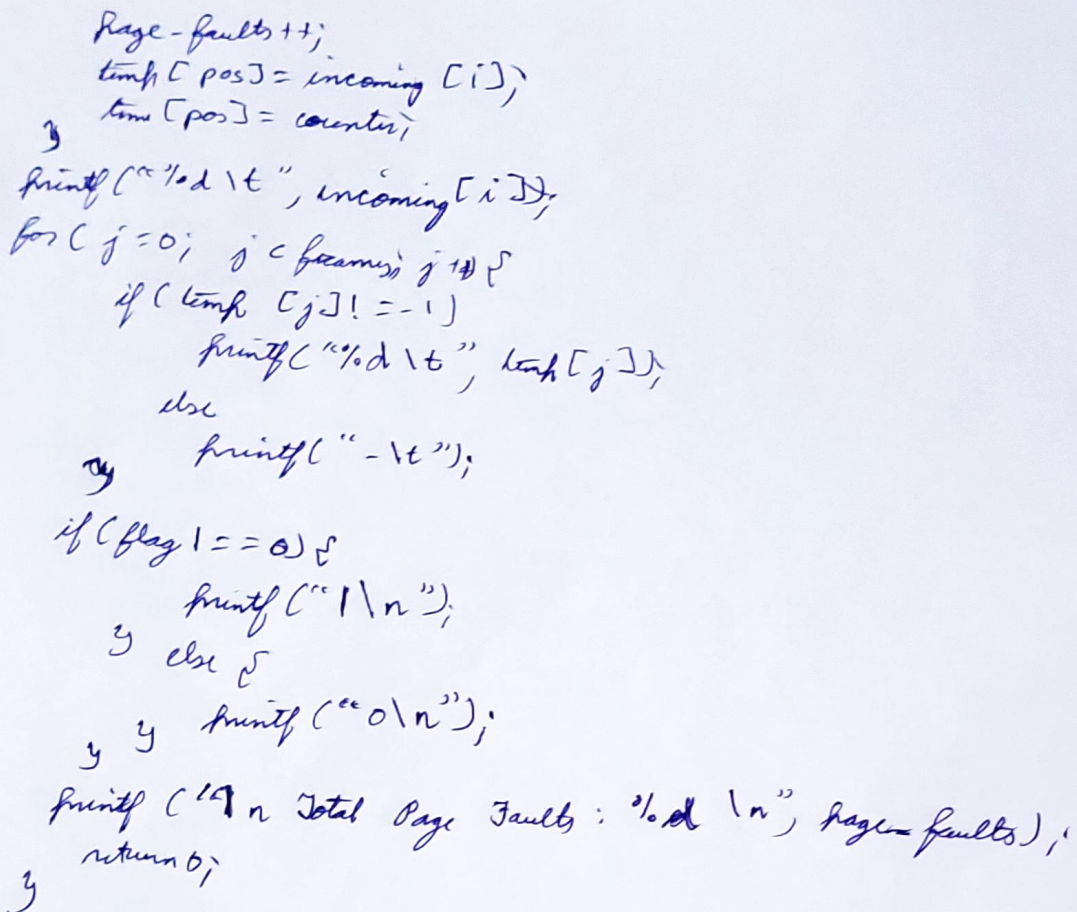 page-faults++;
temp[pos] = incoming[i];
time[pos] = counter;
}
printf("%d\t", incoming[i]);
for(j=0; j<frames; j++){
if(temp[j]!=-1)
printf("%d\t", temp[j]);
else
printf("-\t");
}
if(flag1==0){
printf("1\n");
} else {
printf("0\n");
} }
printf("\n Total Page Faults: %d \n", page_faults);
return 0;
}